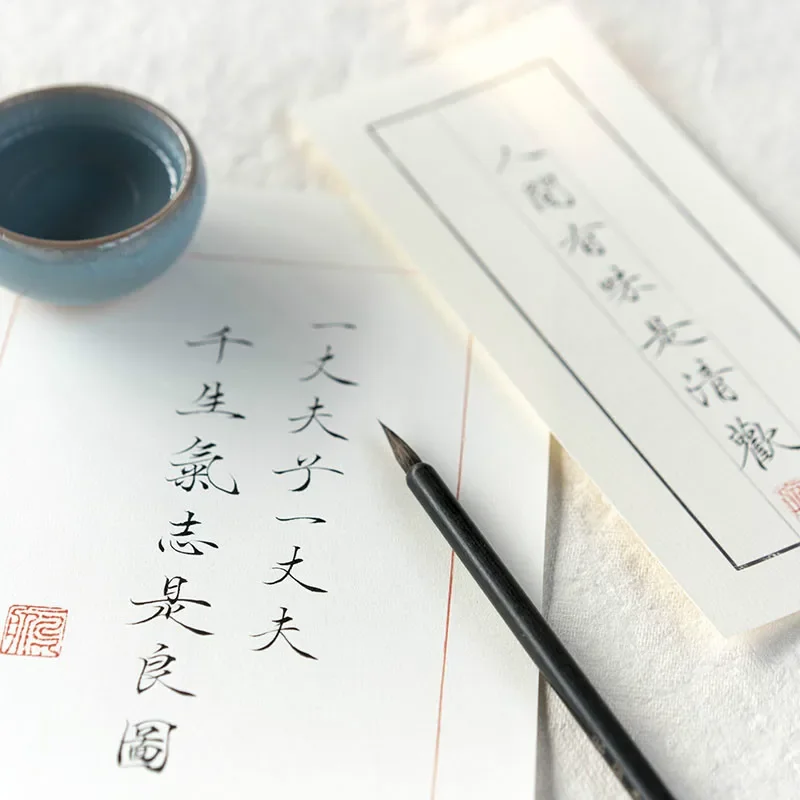 一丈夫兮一丈夫
千生氣志是良圖
人間有味是清歡